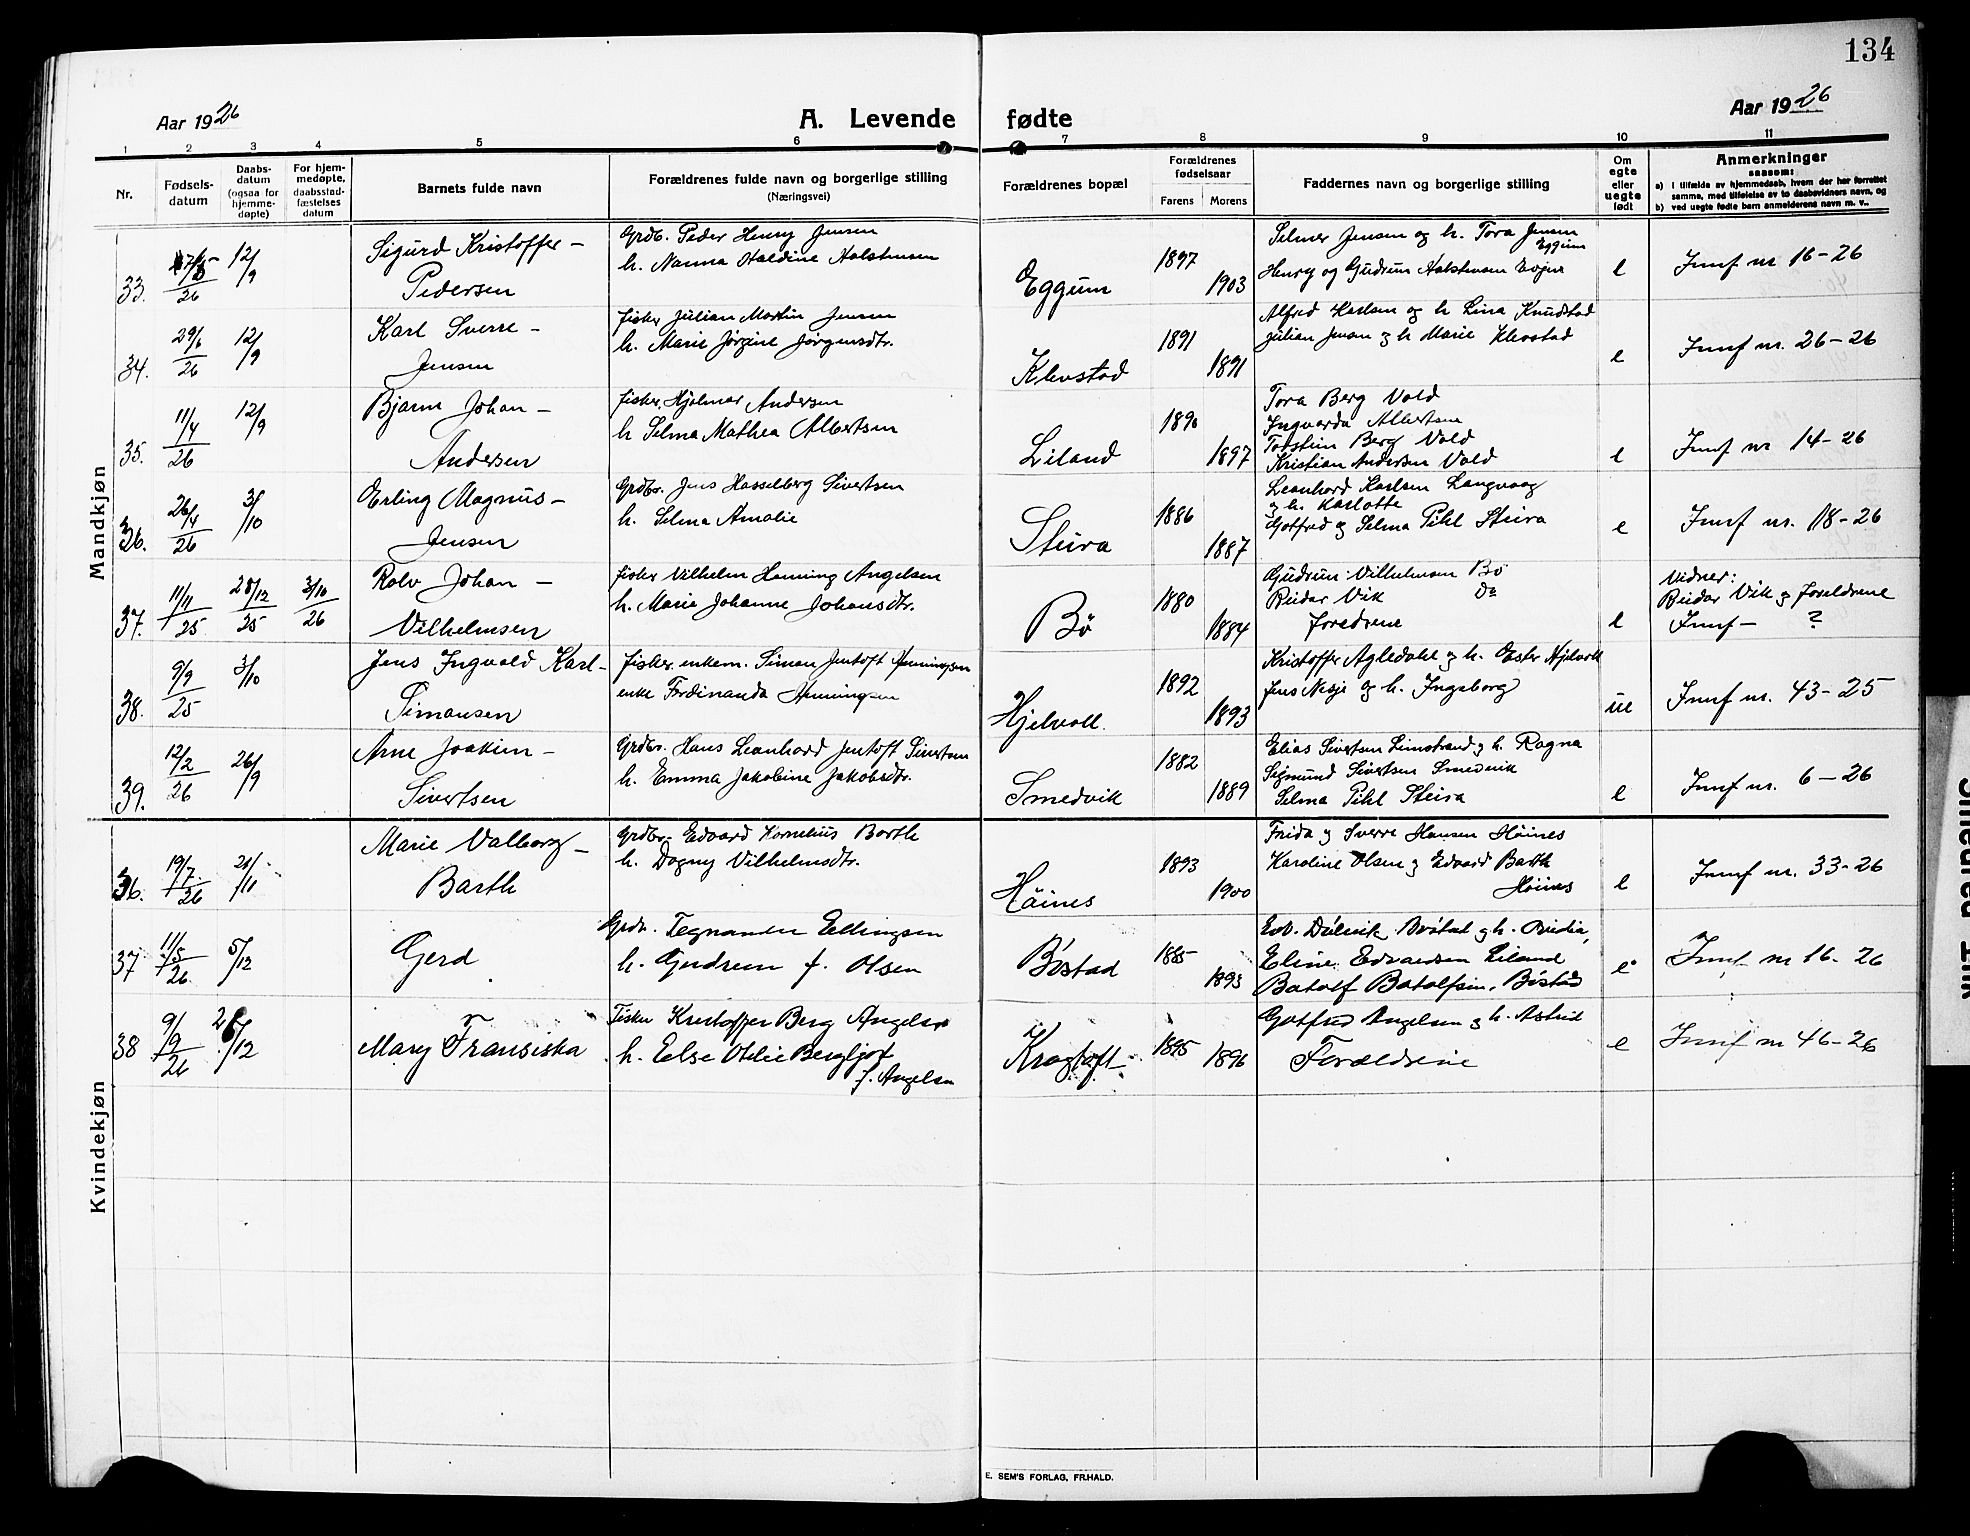 134
Aar 1926
A. Levende fødte
Aar 1926
1 2 3 4 5 6 7 8 9 10 11
Nr.
Fødsels-
datum
Daabs-
datum
(ogsaa for
hjemme-
døpte)
For hjem-
medøpte,
daabsstad-
fæstelses
datum
Barnets fulde navn
Forældrenes fulde navn og borgerlige stilling
(Næringsvei)
Forældrenes bopæl
Forældrenes
fødselsaar
Farens Morens
Faddernes navn og borgerlige stilling
Om
egte
eller
uegte
født
Anmerkninger
saasom:
a) i tilfælde av hjemmedaab, hvem der har forrettet
samme, med tilføielse av to daabsvidners navn, og
b) ved uegte fødte barn anmelderens navn m. v..
Mandkjøn
33.
26
12/9
Sigurd Kristoffer -
Pedersen
Grdb. Peder Henry Jensen
h. Nanna Haldine Aalstensen
Eggum
1897
1903
Selmer Jensen og h. Tora Jensen
Eggum
Henry og Gudrun
e
Jnnf nr 16-26
34.
29/6
26
12/9
Karl Sverre -
Jensen
fisker Julian Martin Jensen
h. Marie Jørgine Jørgensdtr.
Klevstad
1891
1891
Alfred Karlsen og h Lina Knudstad
Julian Jensen og h Marie Klevstad
e
Jnnf nr. 26-26
35.
11/4
26
12/9
Bjarne Johan -
Andersen
fisker Hjalmar Andersen
h Selma Mathea Albertsen
Liland
1890
1897
Tora Berg Vold
Ingvarda Albertsen
Torstein Berg Vold
Kristian Andersen Vold
e
Jnnf nr 14-26
36.
26/4
26
3/10
Erling Magnus -
Jensen
Grdbr. Jens Hasselberg Sivertsen
h. Selma Amalie
Steira
1886
1887
Leonhard Karlsen Langvaag
og h. Karlotte
Gotfred og Selma Pihl Steira
e
Jnnf nr. 18-26
37.
11/11
25
28/12
25
3/10
26
Rolv Johan -
Vilhelmsen
fisker Vilhelm Henning Angelsen
h. Marie Johanne Johansdtr.
Bø
1880
1884
Gudrun Vilhelmsen Bø
Reidar Vik Do
foredrene
e
Vidner:
Reidar Vik og foreldrene
Jnnf - ?
38.
9/9
25
3/10
Jens Ingvald Karl -
Simonsen
fisker enkem. Simon Jentoft Henningsen
enke Ferdinanda Henningsen
Hjelvoll
1892
1893
Kristoffer Agledahl og h. Ester Hjelvoll
Jens Nesje og h. Ingeborg
ue
Jnnf nr. 43-25
39.
12/2
26
26/9
Arne Joakim -
Sivertsen
Grdbr. Hans Leonhard Jentoft Sivertsen
h. Emma Jakobine Jakobsdtr.
Smedvik
1882
1889
Elias Sivertsen Limstrand og h. Ragna
Sigmund Sivertsen Smedvik
Selma Pihl Steira
e
Jnnf nr. 6-26
Kvindekjøn
36.
19/7
26
21/11
Marie Valborg -
Barth
Grdbr. Edvard Kornelius Barth
h. Dagny Vilhelmsdtr.
Høines
1893
1900
Frida og Sverre Hansen Høines
Karoline Olsen og Edvard Barth
Høines
e
Jnnf nr. 33-26
37
11/5
26
5/12
Gerd
Grdb. Tegnander Ellingsen
h. Gudrun f. Olsen
Bøstad
1885
1893
Eline Edvardsen Liland
Batolf Batolfsen, Bøstad
e
Jnnf nr 16-26
38
9/9
26
26/12
Mary Fransiska
Fisker Kristoffer Berg Angelsen
h. Else Otelie Bergljot
f. Angelsen
Kragtoft
1895
1896
Gotfred Angelsen og h. Astrid
Forældrene
e
Jnnf nr 46-26
E. SEM'S FORLAG, FR.HALD.